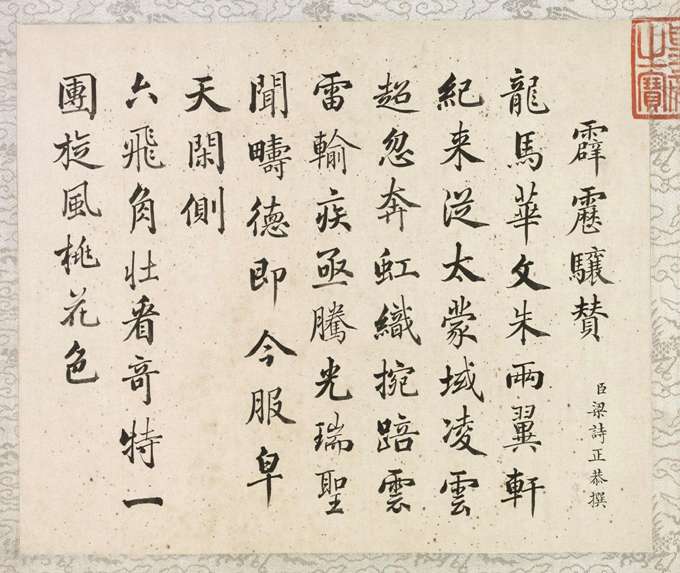 霹靂驤賛
臣梁詩正恭撰
龍馬華文朱兩翼軒
紀来從太蒙域凌雲
超忽奔虹織捥踣雲
雷輸疾亟騰光瑞聖
聞疇德即今服皁
天閑側
六飛角壯看奇特一
團旋風桃花色